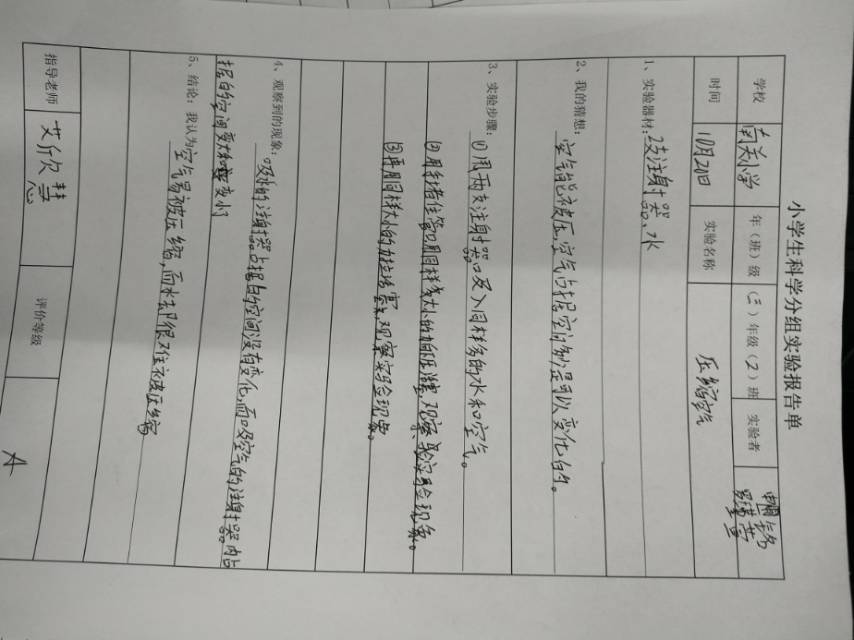 小学生科学分组实验报告单
学校 南关小学 年（班）级 （三）年级（2）班 实验者
时间 10月20日 实验名称 压缩空气
1、实验器材：2支注射器、水
2、我的猜想：
空气能被压，空气占据空间是可以变化的。
3、实验步骤：①用两支注射器吸入同样多的水和空气。
②用手堵住管口用同样大小的力向压活塞，观察实验现象。
③再用同样大小的力拉活塞，观察实验现象。
4、观察到的现象：
吸水的注射器占据的空间没有变化，而吸空气的注射器内占
据的空间变大和变小
5、结论：我认为空气易被压缩，而水却很难被压缩
指导老师 艾欣慧 评价等级 A